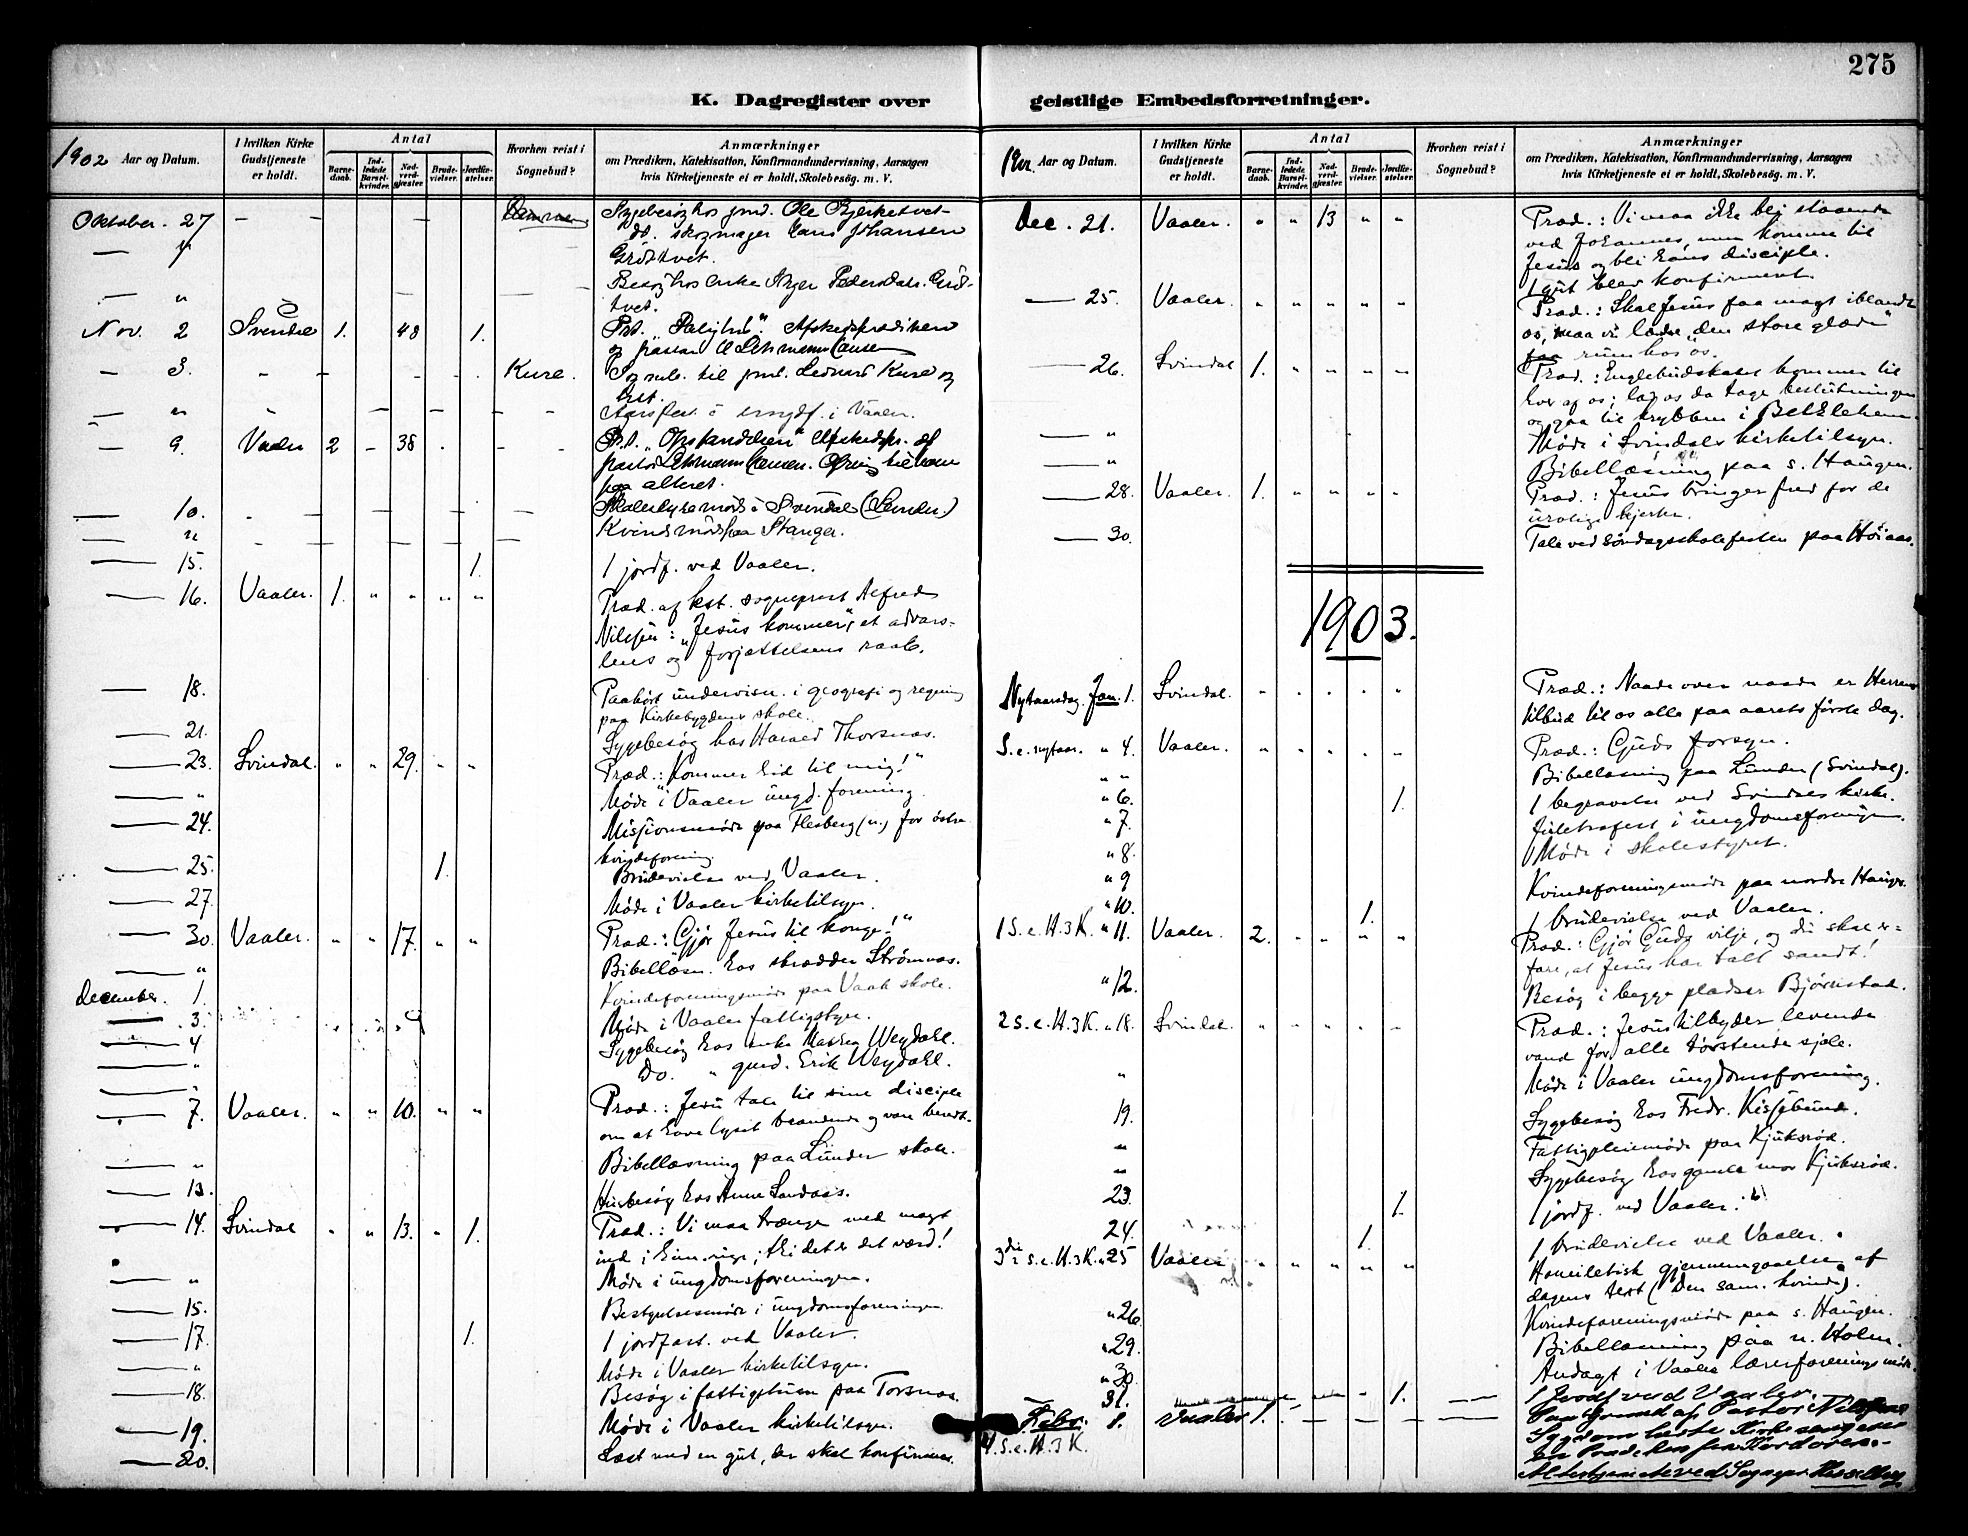 275
K. Dagregister over geistlige Embedsforretninger.
1902 Aar og Datum. I hvilken Kirke Gudstjeneste er holdt. Antal Barnedaab. Indledede Barselkvinder. Nadverdgjæster. Brudevielser. Jordfæstelser. Hvorhen reist i Sognebud? Anmærkninger om Prædiken, Katekisation, Konfirmandundervisning, Aarsagen hvis Kirketjeneste ei er holdt, Skolebesøg. m. V.
Oktober. 27 - - - Sygebesøg hos gmd. Ole Bjerketvet
— " do. skogmager Hans Johansen
Grøttvet.
— " Besøg hos enke Inger Pedersdatr. Grøt-
tvet.
Nov. 2 Svindal 1. 48 1. Afskedsprædiken
— 3. Kure. Sognb. til gmd. Leonard Kure og
— " Aarsfest i ungdf. i Vaaler.
— 9. Vaaler 2 - 38 Prd. "Opstandelsen" Afskedspr. af
pastor Lehmann Hansen. Ofring til ham
paa alteret.
— 10. i Svindal
— " Kvindemøde paa Stanger.
— 15. 1. 1 jordf. ved Vaaler.
— 16. Vaaler. 1. " " " " Præd. af kst. sogneprest Alfred
Nilssen: "Jesus kommer", et advars-
lens og forjættelsens raab.
— 18. Paahørt undervisn. i geografi og regning
paa Kirkebygdens skole.
— 21. Sygebesøg hos Harald Thorsnæs.
— 23. Svindal. " " 29. " " Præd.: "Kommer hid til mig!"
— " Møde i Vaaler ungd. forening.
— 24. Missionsmøde paa Flesberg (n.) for østre
kvindeforening.
— 25. 1. Brudevielse ved Vaaler.
— 27. Møde i Vaaler kirketilsyn.
— 30. Vaaler. " " 17. " " Præd.: "Gjør Jesus til konge!"
— " Bibellæsn. hos skrædder Strømnæs.
December. 1. Kvindeforeningsmøde paa Vaak skole.
— 3. Møde i Vaaler fattigstyre.
— 4 Sygebesøg hos enke Mathea Weydahl.
— " Do. " gmd. Erik Weydahl.
— 7. Vaaler. " " 10. " " Præd.: Jesu tale til sine disciple
om at have lyset brændende og være beredt.
— " Bibellæsning paa Lunder skole.
— 13. Husbesøg hos Anne Sandaas.
— 14. Svindal " " 13. " 1. Præd.: Vi maa trænge med magt
ind i Him. rige; thi det er det værd!
— " Møde i ungdomsforeningen.
— 15. Bestyrelsesmøde i ungdomsforeningen.
— 17. 1. 1 jordfæst. ved Vaaler.
— " Møde i Vaaler kirketilsyn.
— 18. Besøg i fattigstuen paa Torsnæs.
— 19. Møde i Vaaler kirketilsyn.
— 20. Læst med en gut, der skal konfirmeres.
Aar og Datum. I hvilken Kirke Gudstjeneste er holdt. Antal Barnedaab. Indledede Barselkvinder. Nadverdgjæster. Brudevielser. Jordfæstelser. Hvorhen reist i Sognebud? Anmærkninger om Prædiken, Katekisation, Konfirmandundervisning, Aarsagen hvis Kirketjeneste ei er holdt, Skolebesøg. m. V.
Dec. 21. Vaaler. " " 13 " " Præd.: Vi maa ikke bli staaende
ved Johannes, men komme til
Jesus og bli hans disciple.
1 gut blev konfirmeret.
— 25. Vaaler. " " " " " Præd.: Skal Jesus faa magt iblandt
os, maa vi lade "den store glæde"
faa rum hos os.
— 26. Svindal 1. " " " " Præd.: Englebudskabet kommer til
hver af os; lad os da tage beslutningen
og gaa til krybben i Bethlehem.
— " Møde i Svindals kirketilsyn.
— " Bibellæsning paa s. Haugen.
— 28. Vaaler. 1. " " " " Præd.: Jesus bringer fred for de
urolige hjerter.
— 30. Tale ved søndagsskolefesten paa Høiaas.
1903.
Nytaarsdag. Jan. 1. Svindal. " " " " " Præd.: Naade over naade er Herrens
tilbud til os alle paa aarets første dag.
S. e. nytaar. " 4. Vaaler. " " " " " Præd.: Guds forsyn.
" " Bibellæsning paa Lunder (Svindal).
" 6. 1. 1 begravelse ved Svindals kirke.
" 7. Juletræfest i ungdomsforeningen.
" 8. Møde i skolestyret.
" 9 Kvindeforeningsmøde paa nordre Haugen.
" 10. 1. 1 brudevielse ved Vaaler.
1 S. e. H. 3 K. " 11. Vaaler. 2. " " " " Præd.: Gjør Guds vilje, og du skal er-
fare, at Jesus har talt sandt!
" 12. Besøg i begge pladser Bjørnstad.
2 S. e. H. 3 K. " 18. Svindal. " " " " " Præd.: Jesus tilbyder levende
vand for alle tørstende sjæle.
" Møde i Vaaler ungdomsforening.
19. Sygebesøg hos Fredr. Kisjebund.
" Fattigpleiemøde paa Kjuksrød.
" Sygebesøg hos gamle mor Kjuksrød.
23. 1. 1 jordf. ved Vaaler.
24. 1. 1 brudevielse ved Vaaler.
3die S. e. H. 3 K. " 25 Vaaler " " " " " Homiletisk gjennemgaaelse af
dagens text (Den sam. kvinde).
" 26. Kvindeforeningsmøde paa s. Haugen.
" 29. Bibellæsning paa n. Holm.
" 30. Andagt i Vaaler lærerforenings møde.
31. 1. 1 Jordf ved Vaaler.
Febr. 1. Vaaler 1. Paa Grund af Pastor Nilssens
4. S. e. H. 3 K. Sygdom læste Kirkesangeren
en Prædiken
Altertjeneste ved Sognepr.